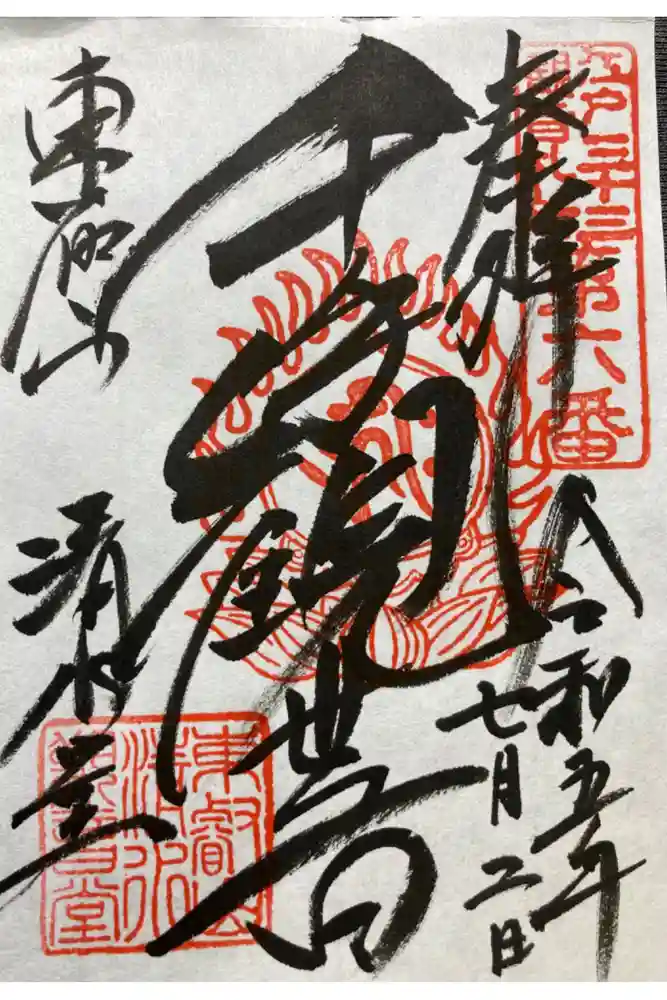 江戸三十三
第六番
奉拝
令和五年
七月二日
千手観世音
東叡山
清水堂
東叡山
清水
観音堂